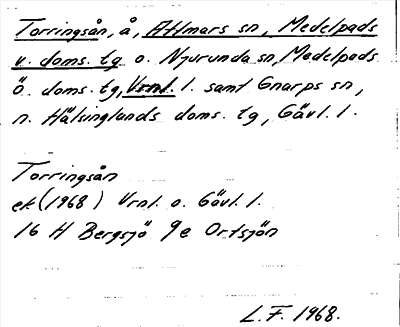 Torringsån, å, Attmars sn, Medelpads
v. doms. tg o. Njurunda sn, Medelpads
ö. doms. tg, Vrnl. l. samt Gnarps sn,
n. Hälsinglands doms. tg, Gävl. l.
Torringsån
ek (1968) Vrnl. o. Gävl. l.
16 H Bergsjö 9e Ortsjön
L.F. 1968.